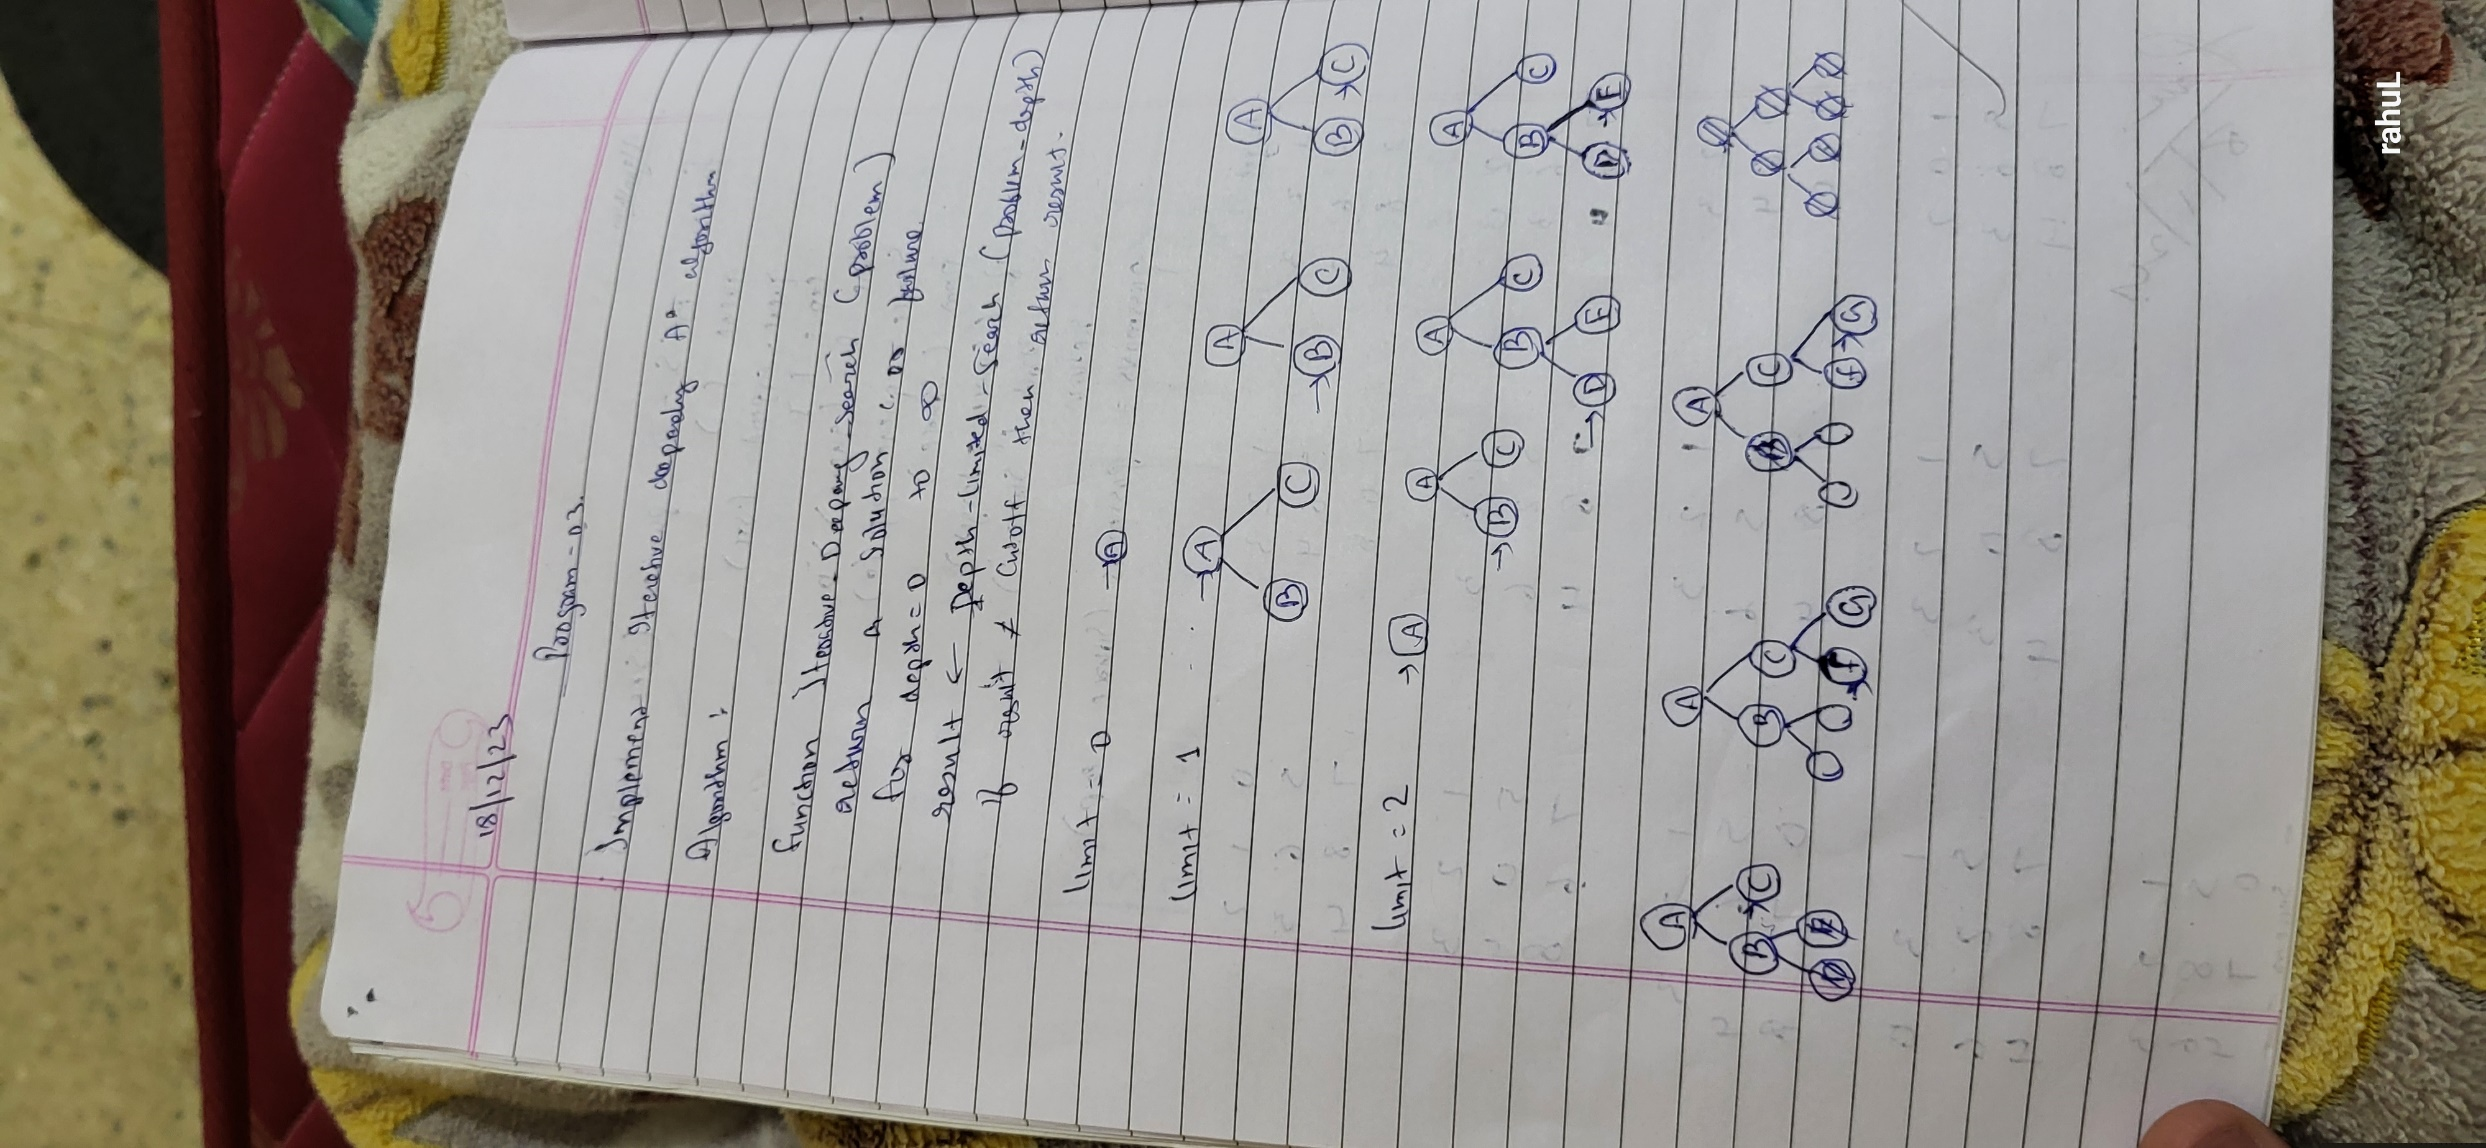 18/12/23
Program - 03.
Implement Iterative deepandig A* algorithm
Algorithm :
function Iterative - Deepang - Search (problem)
return a solution or failure
for depth = 0 to ∞
result ← Depth - limited - Search (problem - depth)
if result ≠ cutoff then return result.
limit = 0 → A
limit = 1
→ A B C
A → B C
A B → C
limit = 2 → A
A → B C
A B C → D E
A B C D → E
A B → C D E
A B C → F G
A B C F → G
rahuL